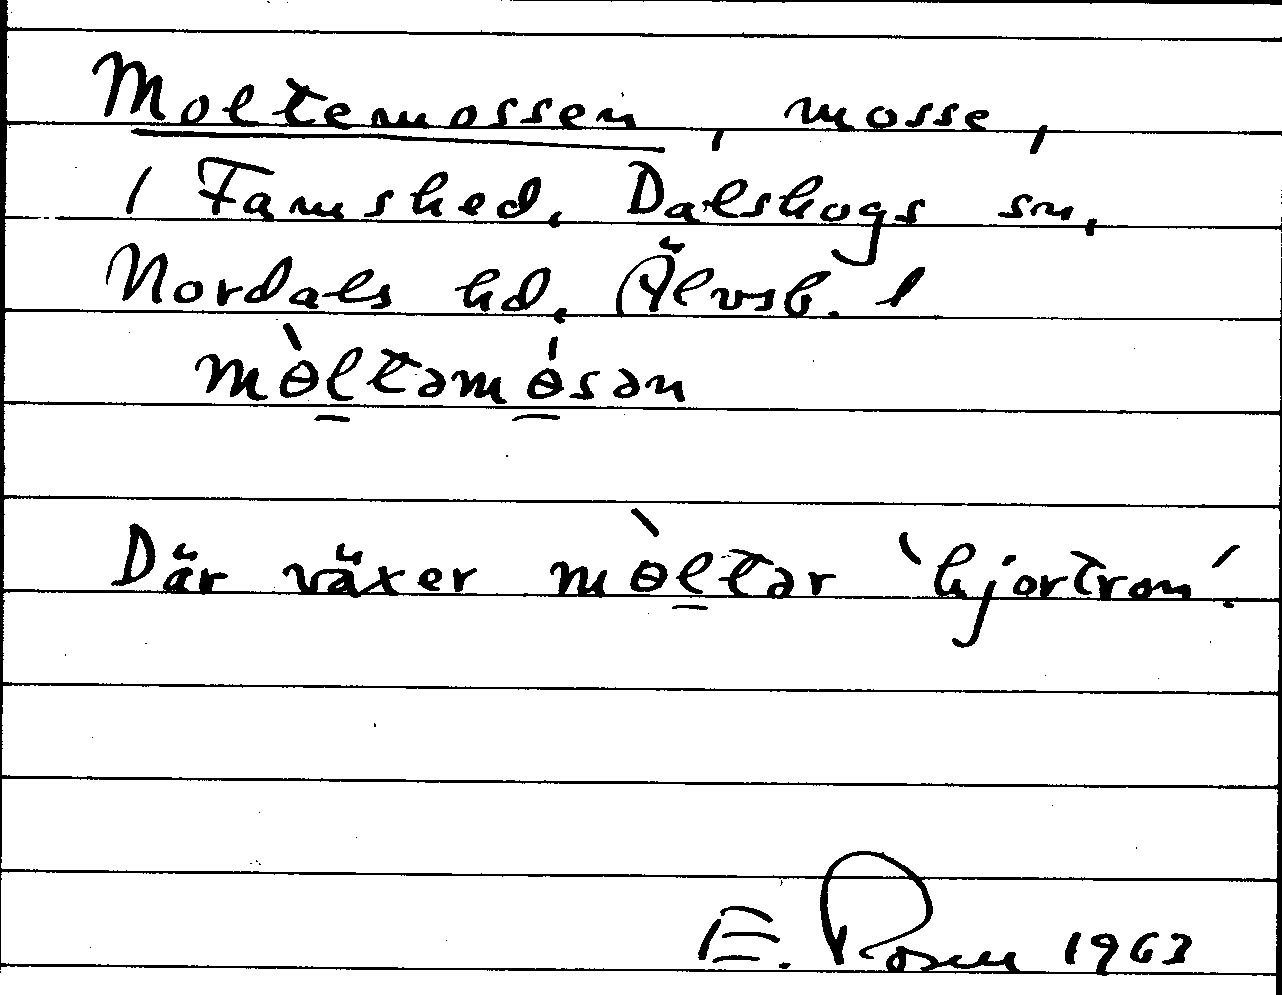 Moltemossen, mosse,
i Famshed, Dalskogs sn,
Nordals hd, Älvsb. l
mɵ̀ltəmɵ́sən
Där växer mɵ̀ltər 'hjortron'.
E. Rosen 1963